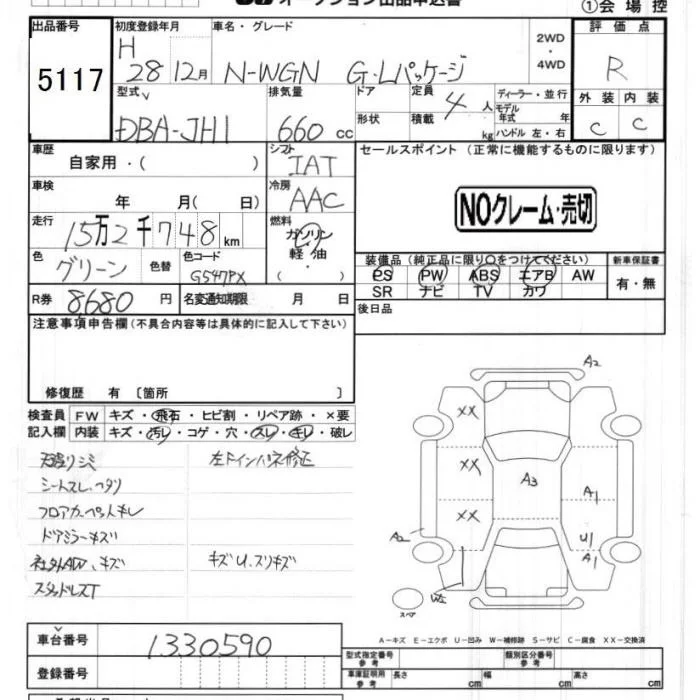 オークション出品申込書
①会場控
出品番号 初度登録年月 車名・グレード 評価点
5117 H 28 12月 N-WGN G・Lパッケージ 2WD・4WD R
型式 排気量 ドア 定員 ディーラー・並行 外装 内装
DBA-JH1 660 cc 形状 4 人 積載 kg モデル年式 年 ハンドル 左・右 C C
車歴 自家用・( ) シフト IAT セールスポイント (正常に機能するものに限ります)
車検 年 月( 日) 冷房 AAC
NOクレーム・売切
走行 15万2千748km 燃料 ガソリン 軽・油 ・( )
色 グリーン 色替 色コード G547PX
装備品 (純正品に限り○をつけてください) 新車保証書
PS PW ABS エアB AW 有・無
SR ナビ TV カワ
R券 8680 円 名変通知期限 月 日
後日品
注意事項申告欄 (不具合内容等は具体的に記入して下さい)
修復歴 有 〔箇所 〕
検査員 FW キズ・飛石・ヒビ割・リペア跡・×要
記入欄 内装 キズ・汚レ・コゲ・穴・スレ・キレ・破レ
天張リシミ 左Fインパネ修正
シートスレ、ヘタリ
フロアカーペットキレ
ドアミラーキズ
社外AW、キズ キズU、スリキズ
スタッドレスT
A2
XX
XX A3 A1
XX
A2 U1
A1
W2
スペア
A-キズ E-エクボ U-凹み W-補修跡 S-サビ C-腐食 XX-交換済
車台番号 1330590
型式指定番号 参考 類別区分番号 参考
登録番号 車庫証明用 参考 長さ cm 幅 cm 高さ cm